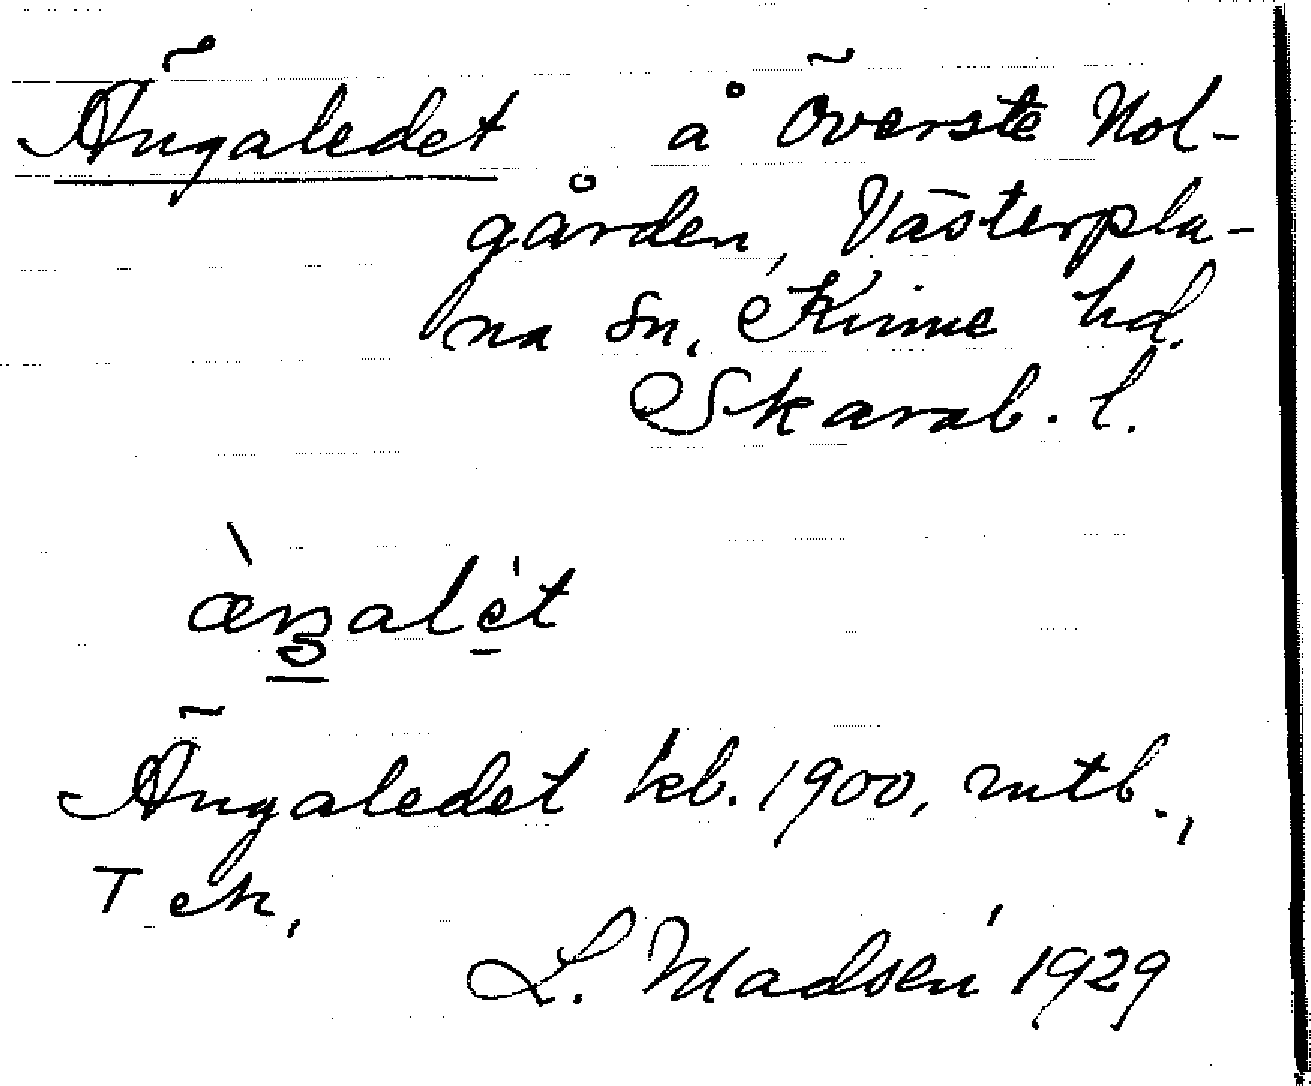 Ängaledet å Överste Nol-
gården, Västerpla-
na sn, Kinne hd.
Skarab. l.
Ängaledet kb. 1900, mtb.,
T ek,
L. Madsén 1929